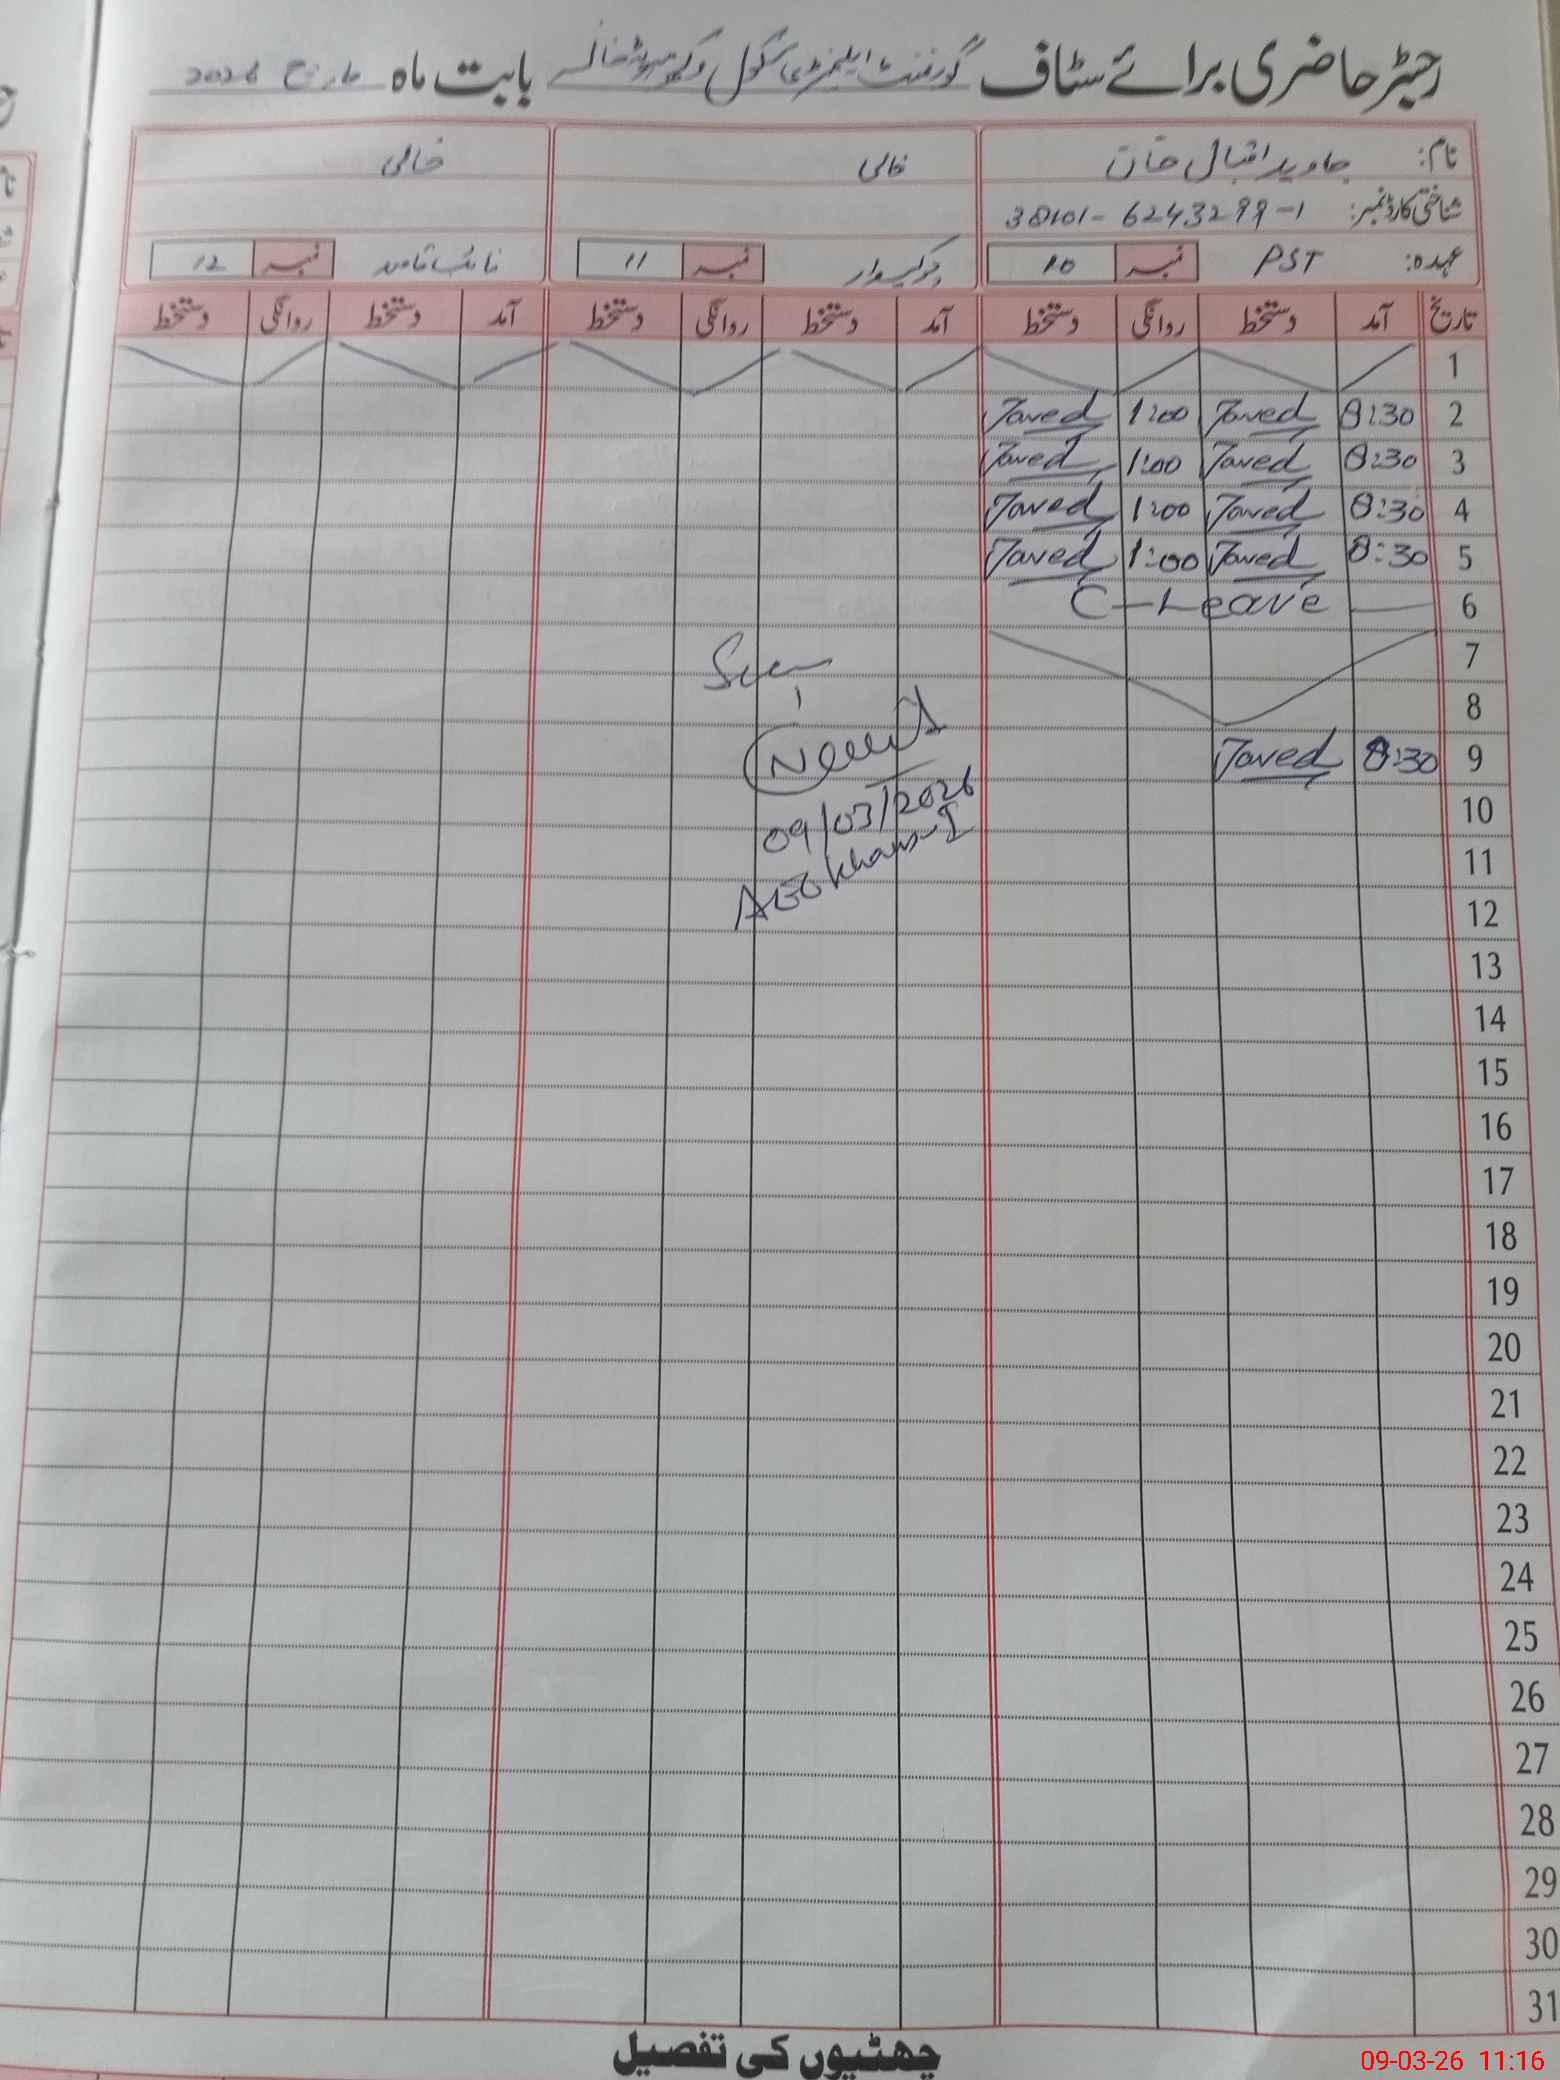 رجیٹر حاضری برائے سٹاف گورنمنٹ ایلیمنٹری سکول بابت ماہ مارچ 2026
نام: جاوید اقبال خان خالی خالی
شناختی کارڈ نمبر: 38101-6243299-1
عہدہ: PST نمبر 10 چوکیدار نمبر 11 نائب قاصد نمبر 12
تاریخ آمد دستخط روانگی دستخط آمد دستخط روانگی دستخط آمد دستخط روانگی دستخط
1
2 8:30 Javed 1:00 Javed
3 8:30 Javed 1:00 Javed
4 8:30 Javed 1:00 Javed
5 8:30 Javed 1:00 Javed
6 C-Leave
7
Seen
8
9 8:30 Javed
09/03/2026
10
11
12
13
14
15
16
17
18
19
20
21
22
23
24
25
26
27
28
29
30
31
چھٹیوں کی تفصیل
09-03-26 11:16